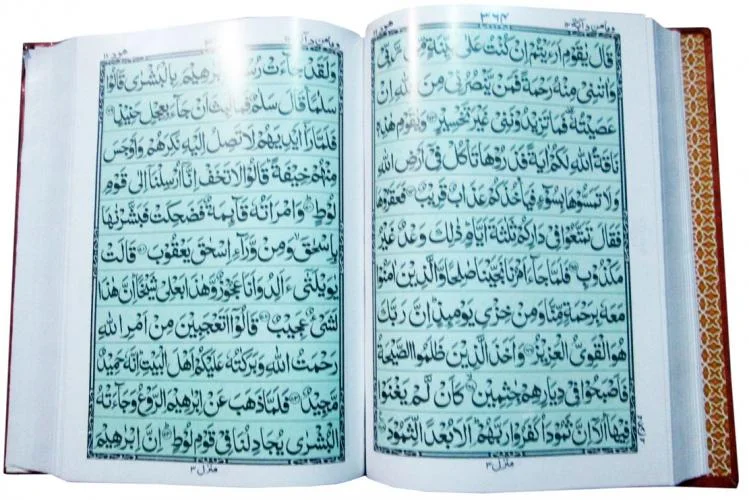 ومامن دآبة ١٢
٣٦٤
هود ١١
قَالَ يٰقَوْمِ اَرَءَيْتُمْ اِنْ كُنْتُ عَلٰى بَيِّنَةٍ مِّنْ رَّبِّيْ
وَاٰتٰىنِيْ مِنْهُ رَحْمَةً فَمَنْ يَّنْصُرُنِيْ مِنَ اللّٰهِ اِنْ
عَصَيْتُهٗ فَمَا تَزِيْدُوْنَنِيْ غَيْرَ تَخْسِيْرٍ وَيٰقَوْمِ هٰذِهٖ
نَاقَةُ اللّٰهِ لَكُمْ اٰيَةً فَذَرُوْهَا تَاْكُلْ فِيْ اَرْضِ اللّٰهِ
وَلَا تَمَسُّوْهَا بِسُوْٓءٍ فَيَاْخُذَكُمْ عَذَابٌ قَرِيْبٌ فَعَقَرُوْهَا
فَقَالَ تَمَتَّعُوْا فِيْ دَارِكُمْ ثَلٰثَةَ اَيَّامٍ ذٰلِكَ وَعْدٌ غَيْرُ
مَكْذُوْبٍ فَلَمَّا جَآءَ اَمْرُنَا نَجَّيْنَا صٰلِحًا وَّالَّذِيْنَ اٰمَنُوْا
مَعَهٗ بِرَحْمَةٍ مِّنَّا وَمِنْ خِزْيِ يَوْمِئِذٍ اِنَّ رَبَّكَ
هُوَ الْقَوِيُّ الْعَزِيْزُ وَاَخَذَ الَّذِيْنَ ظَلَمُوا الصَّيْحَةُ
فَاَصْبَحُوْا فِيْ دِيَارِهِمْ جٰثِمِيْنَ كَاَنْ لَّمْ يَغْنَوْا
فِيْهَا اَلَآ اِنَّ ثَمُوْدَا۠ كَفَرُوْا رَبَّهُمْ اَلَا بُعْدًا لِّثَمُوْدَ
منزل ٣
ومامن دآبة ١٢
هود ١١
وَلَقَدْ جَآءَتْ رُسُلُنَآ اِبْرٰهِيْمَ بِالْبُشْرٰى قَالُوْا
سَلٰمًا قَالَ سَلٰمٌ فَمَا لَبِثَ اَنْ جَآءَ بِعِجْلٍ حَنِيْذٍ
فَلَمَّا رَآٰ اَيْدِيَهُمْ لَا تَصِلُ اِلَيْهِ نَكِرَهُمْ وَاَوْجَسَ
مِنْهُمْ خِيْفَةً قَالُوْا لَا تَخَفْ اِنَّآ اُرْسِلْنَآ اِلٰى قَوْمِ
لُوْطٍ وَامْرَاَتُهٗ قَآئِمَةٌ فَضَحِكَتْ فَبَشَّرْنٰهَا
بِاِسْحٰقَ وَمِنْ وَّرَآءِ اِسْحٰقَ يَعْقُوْبَ قَالَتْ
يٰوَيْلَتٰٓى ءَاَلِدُ وَاَنَا عَجُوْزٌ وَّهٰذَا بَعْلِيْ شَيْخًا اِنَّ هٰذَا
لَشَيْءٌ عَجِيْبٌ قَالُوْٓا اَتَعْجَبِيْنَ مِنْ اَمْرِ اللّٰهِ
رَحْمَتُ اللّٰهِ وَبَرَكٰتُهٗ عَلَيْكُمْ اَهْلَ الْبَيْتِ اِنَّهٗ حَمِيْدٌ
مَّجِيْدٌ فَلَمَّا ذَهَبَ عَنْ اِبْرٰهِيْمَ الرَّوْعُ وَجَآءَتْهُ
الْبُشْرٰى يُجَادِلُنَا فِيْ قَوْمِ لُوْطٍ اِنَّ اِبْرٰهِيْمَ
منزل ٣